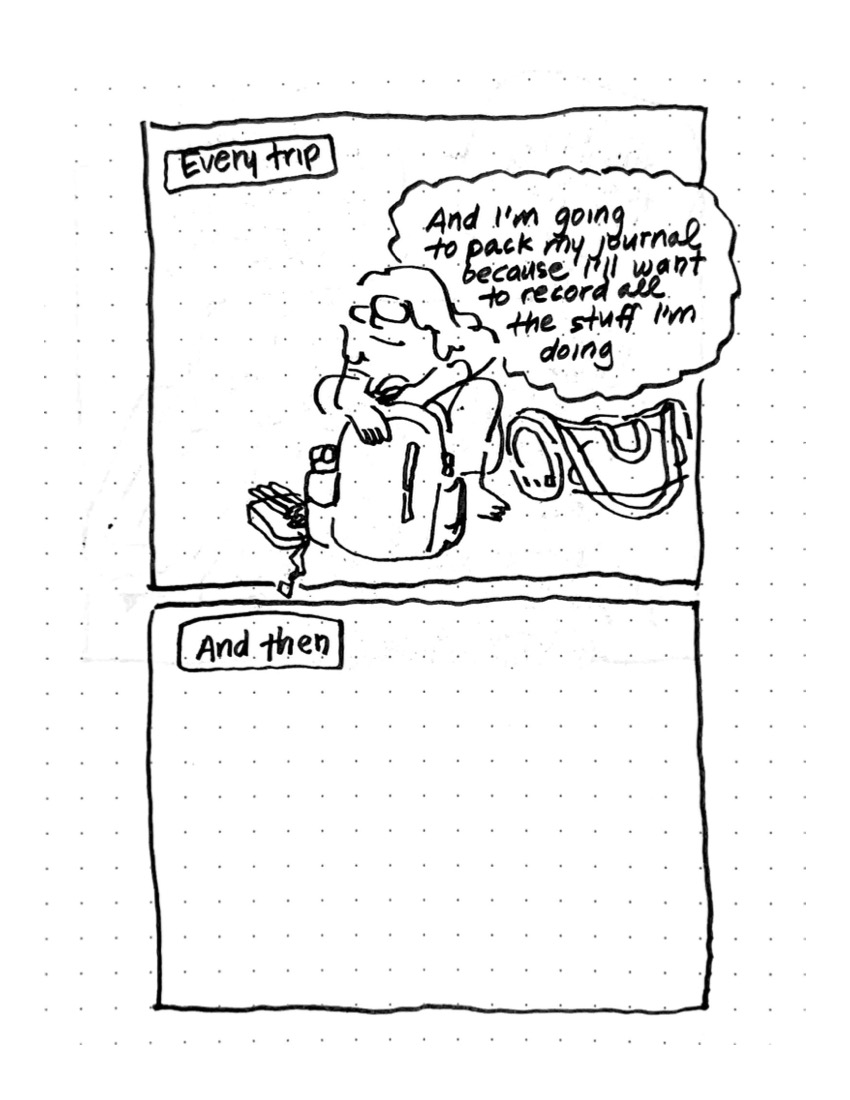 Every trip
And I'm going
to pack my journal
because I'll want
to record all
the stuff I'm
doing
And then